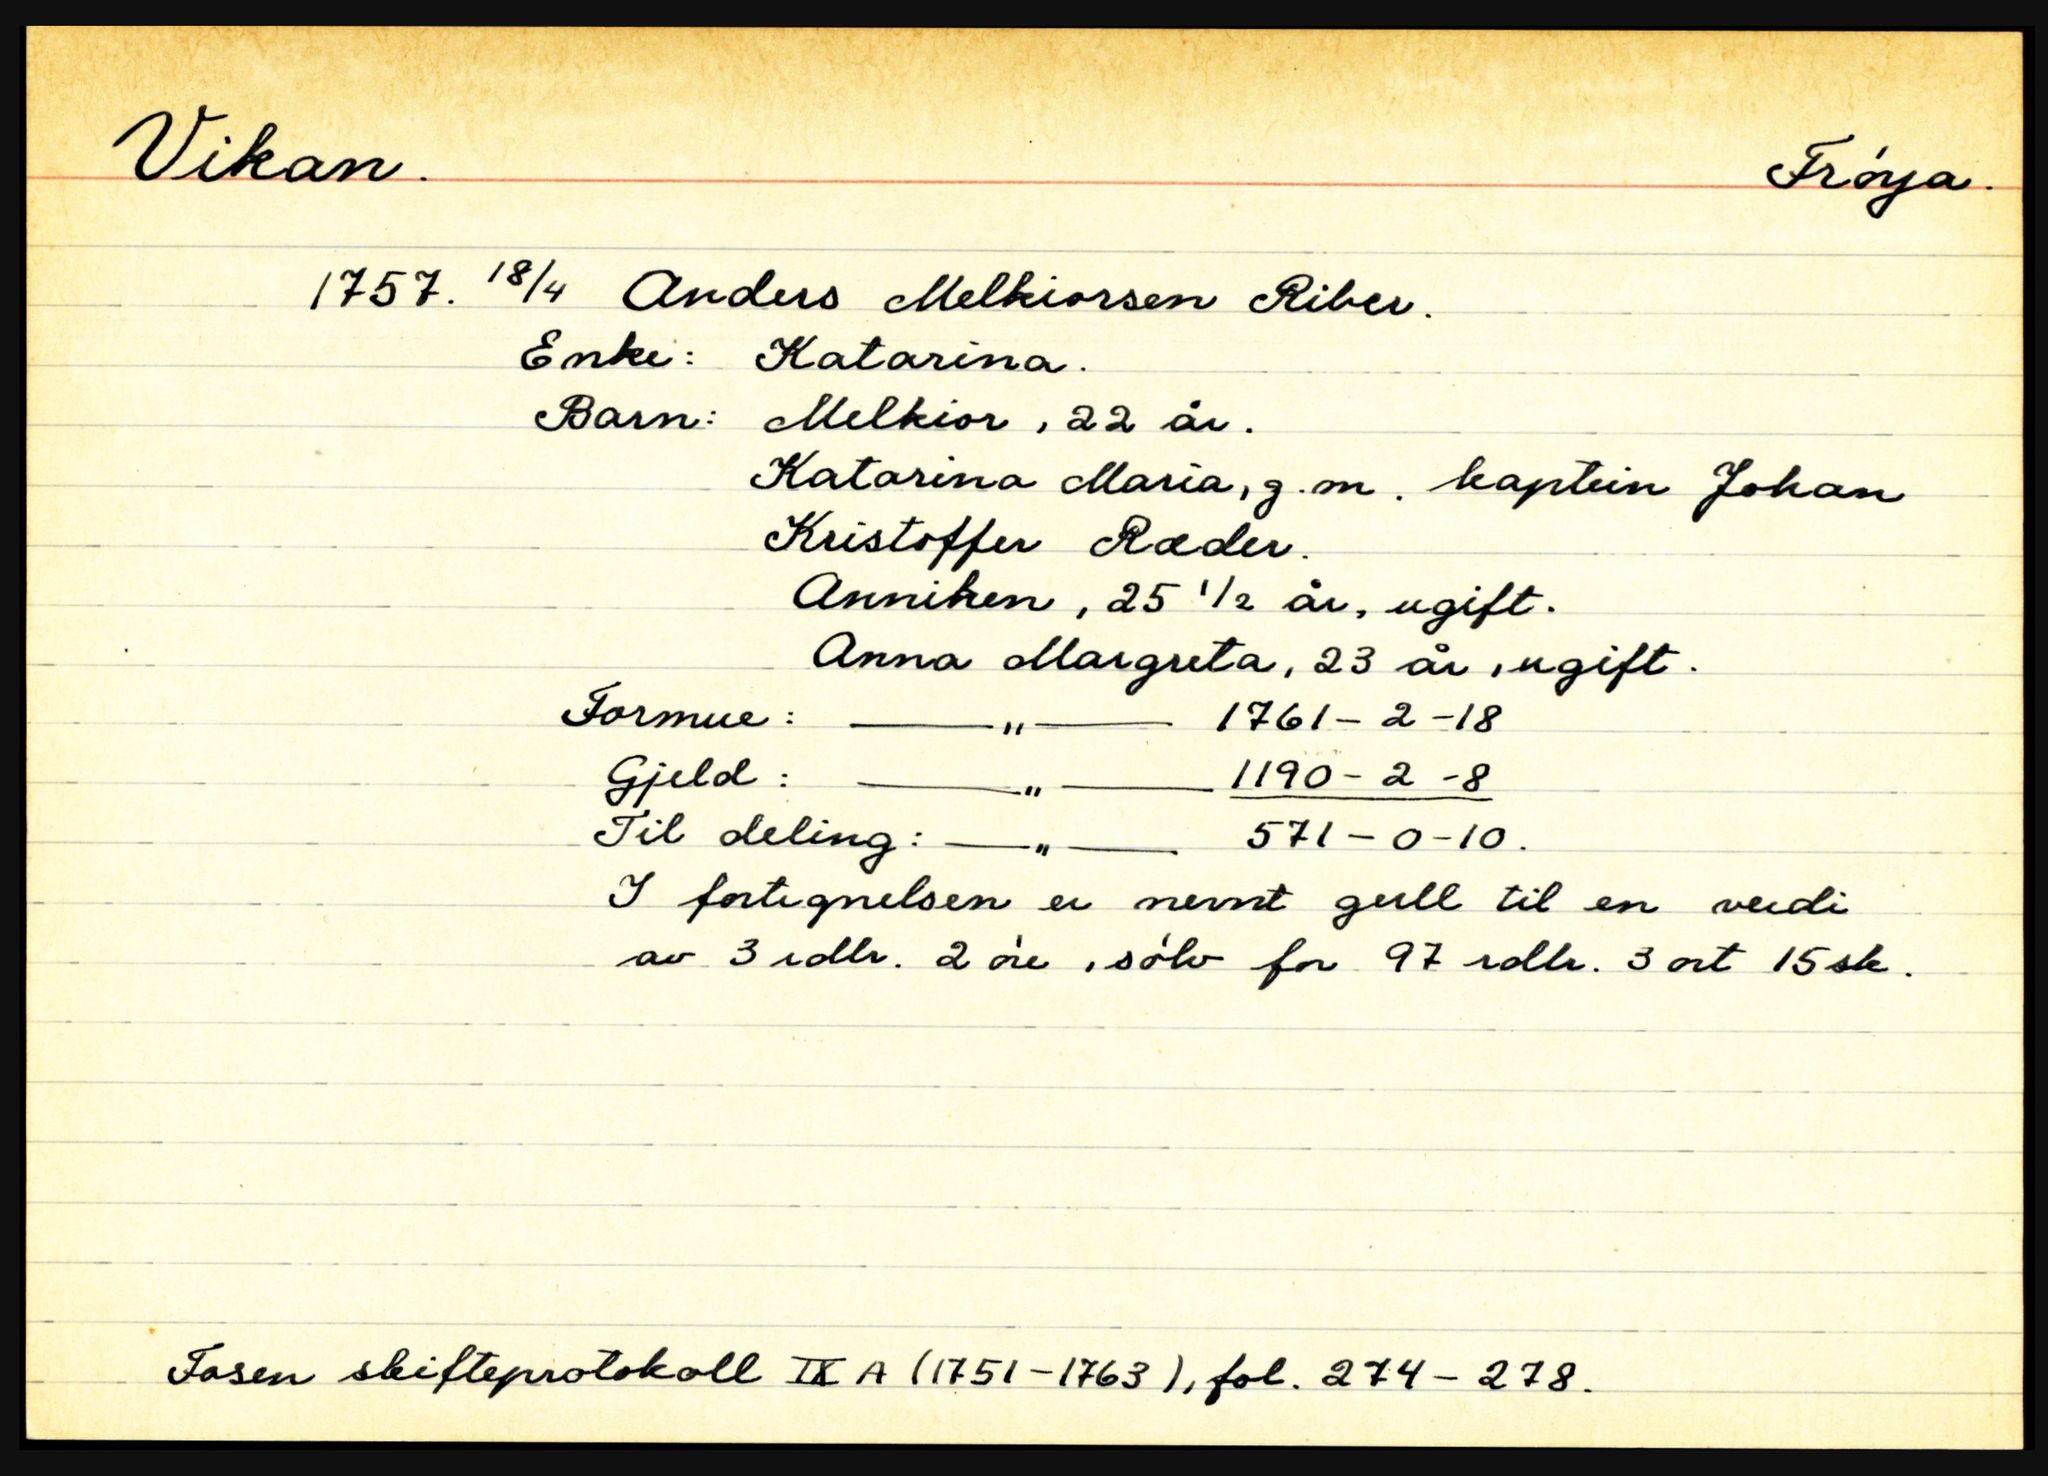 Vikan. Frøya.
1757. 18/4 Anders Melkiorsen Riber.
Enke: Katarina.
Barn: Melkior, 22 år.
Katarina Maria, g.m. kaptein Johan
Kristoffer Ræder.
Anniken, 25 1/2 år, ugift.
Anna Margreta, 23 år, ugift.
Formue: —— " —— 1761 - 2 - 18
Gjeld: —— " —— 1190 - 2 - 8
Til deling: — " — 571 - 0 - 10.
I fortegnelsen er nevnt gull til en verdi
av 3 rdlr. 2 øre, sølv for 97 rdlr. 3 ort 15 sk.
Fosen skifteprotokoll IX A (1751-1763), fol. 274-278.